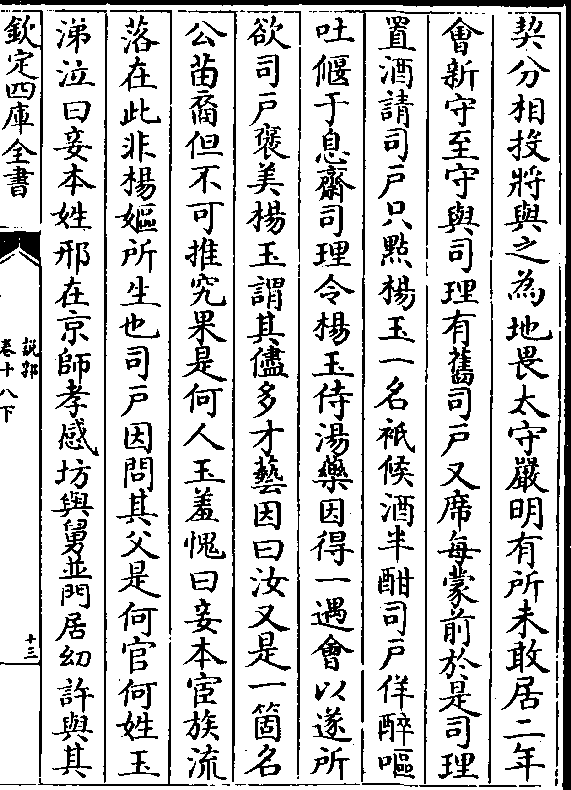 契分相投將與之為地畏太守嚴明有所未敢居二年
會新守至守與司理有舊司戶又席每蒙前於是司理
置酒請司戶只點楊玉一名祗候酒半酣司戶佯醉嘔
吐偃于息齋司理令楊玉侍湯藥因得一遇會以遂所
欲司戶褒美楊玉謂其儘多才藝因曰汝又是一箇名
公苗裔但不可推究果是何人玉羞愧曰妾本宦族流
落在此非楊嫗所生也司戶因問其父是何官何姓玉
涕泣曰妾本姓邢在京師孝感坊與舅並門居幼許與其
欽定四庫全書
說郛
卷十八下
十三